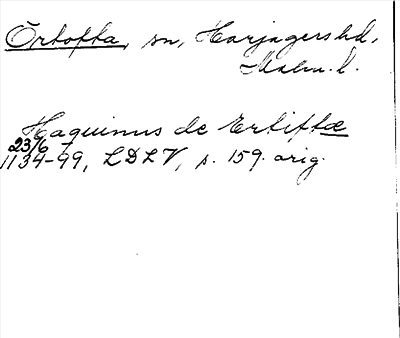 Örtofta, sn, Harjagers hd,
Malm. l.
Haquinus de Ertiftæ
23/6
1134-99, LDLV, s. 159. orig.